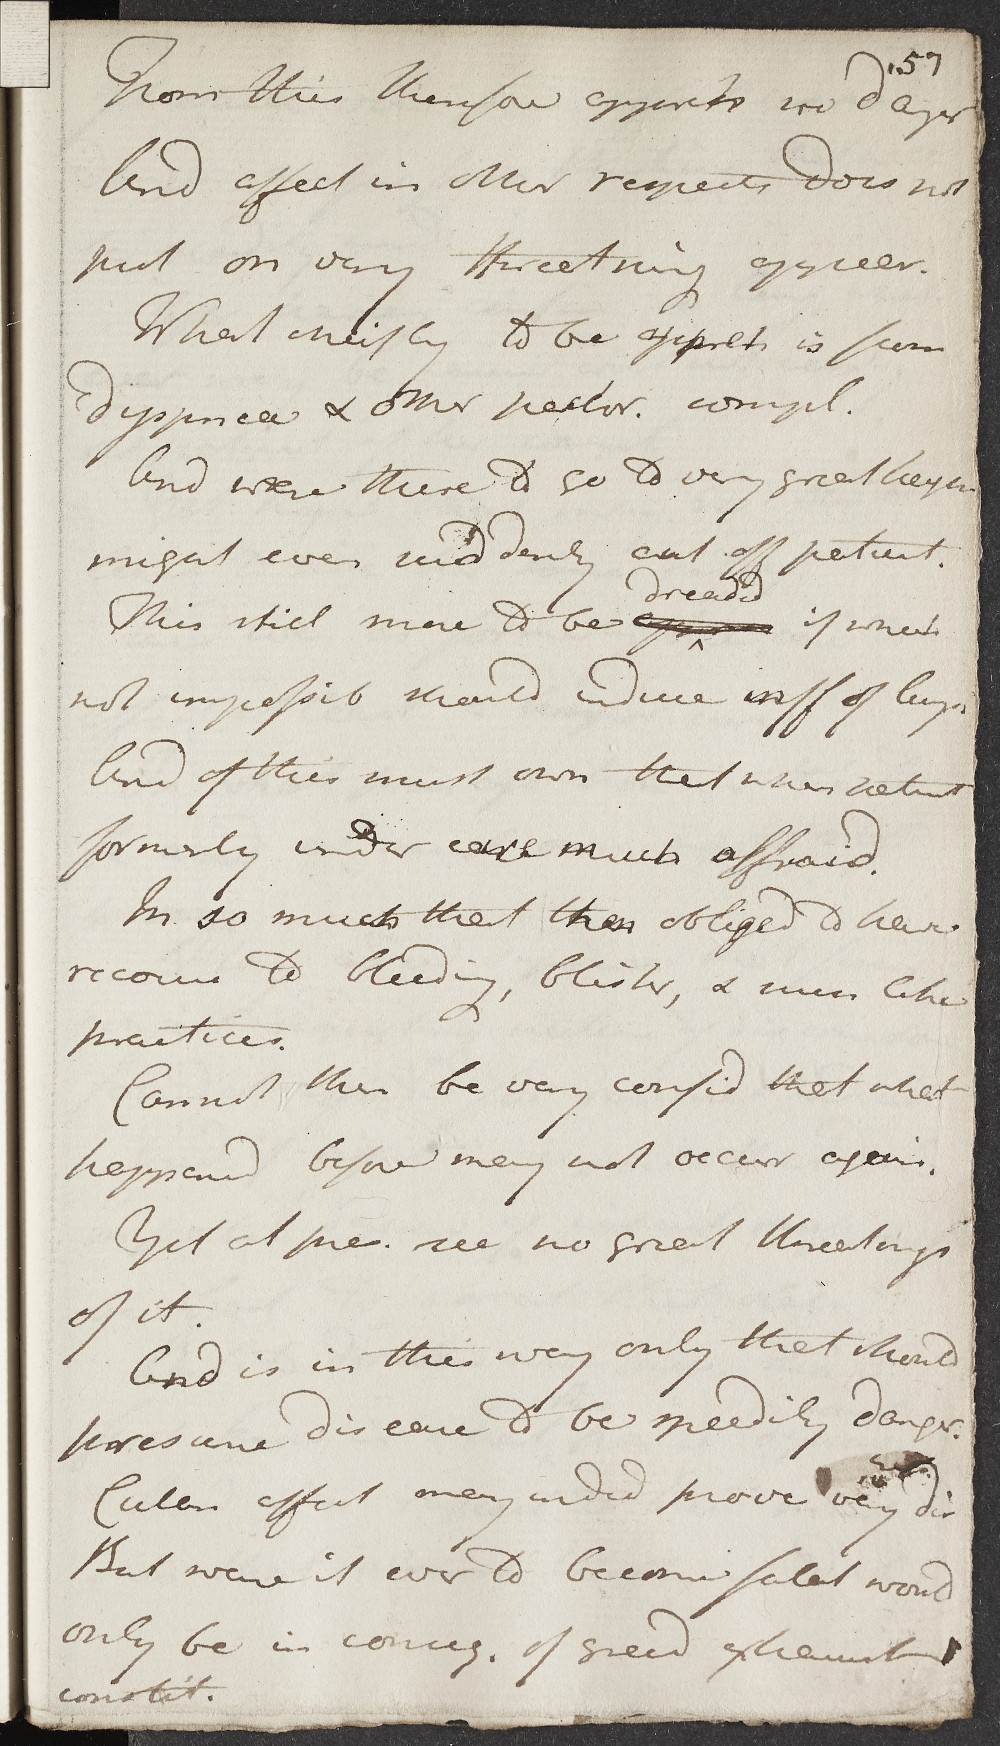 57
From this therefore appreh no danger
And affect in other respects does not
put on very threetning appear.
What chiefly to be appreh is from
dyspnea & other pector. compl.
And were these to go to very great heigh
might even suddenly cut off patient.
dreadd
This still more to be if which
not impossib should induce inff of lungs
And of this must own that when patient
formerly under care much affraid.
In so much that then obliged to have
recours to bleeding, blister, & such like
practices.
Cannot then be very confid that what
happened before may not occur again.
Yet at pres. see no great threatnings
of it.
And is in this way only that should
presume disease to be speedily danger.
Cutan affect may indeed prove very dis
But were it ever to become fatal would
only be in conseq. of great exhausted
constit.